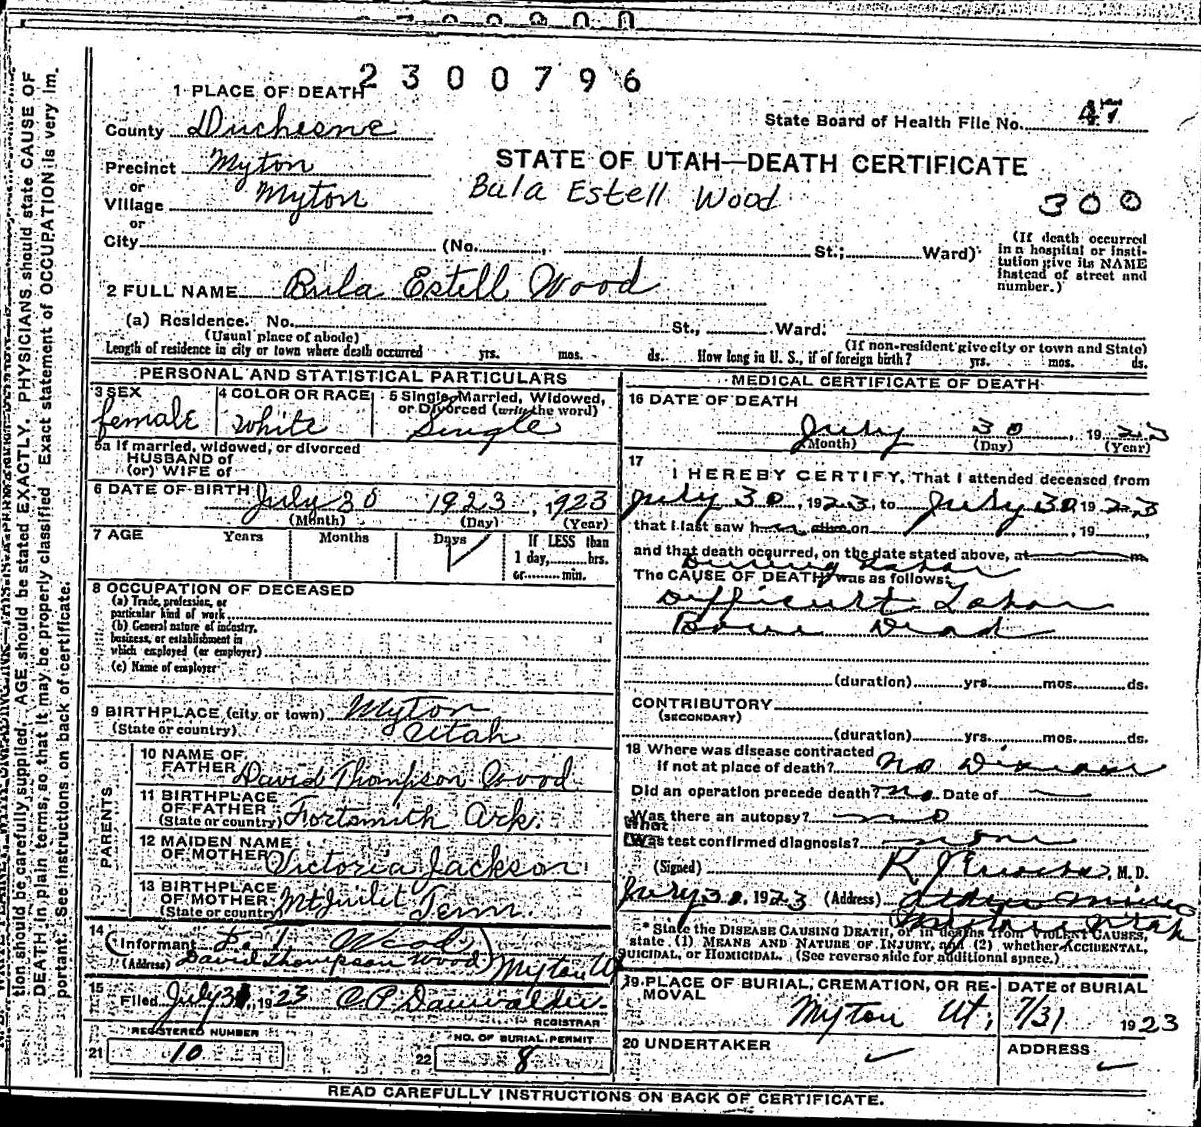 2300796
1 PLACE OF DEATH
State Board of Health File No. 47
County Duchesne
STATE OF UTAH—DEATH CERTIFICATE
Precinct Myton
or
Village Myton
Bula Estell Wood
300
or
City (No. St.; Ward)
(If death occurred
in a hospital or insti-
tution give its NAME
instead of street and
number.)
2 FULL NAME Bula Estell Wood
(a) Residence. No. St., Ward.
(Usual place of abode) (If non-resident give city or town and State)
Length of residence in city or town where death occurred yrs. mos. ds. How long in U. S., if of foreign birth? yrs. mos. ds.
PERSONAL AND STATISTICAL PARTICULARS
3 SEX
female
4 COLOR OR RACE
white
5 Single, Married, Widowed,
or Divorced (write the word)
Single
5a If married, widowed, or divorced
HUSBAND of
(or) WIFE of
6 DATE OF BIRTH July 30 1923, 1923
(Month) (Day) (Year)
7 AGE Years Months Days If LESS than
1 day, hrs.
or min.
8 OCCUPATION OF DECEASED
(a) Trade, profession, or
particular kind of work
(b) General nature of industry,
business, or establishment in
which employed (or employer)
(c) Name of employer
9 BIRTHPLACE (city or town) Myton
(State or country) Utah
PARENTS
10 NAME OF
FATHER David Thompson Wood
11 BIRTHPLACE
OF FATHER
(State or country) Fortsmith Ark.
12 MAIDEN NAME
OF MOTHER Victoria Jackson
13 BIRTHPLACE
OF MOTHER
(State or country) Mt Juilet Tenn.
14
Informant D. T. Wood
(Address) David Thompson Wood Myton U
15
Filed July 31, 1923 REGISTRAR
REGISTERED NUMBER
21 10
NO. OF BURIAL PERMIT
22 8
MEDICAL CERTIFICATE OF DEATH
16 DATE OF DEATH
July 30, 1923
(Month) (Day) (Year)
17
I HEREBY CERTIFY, That I attended deceased from
July 30, 1923, to July 30, 1923
that I last saw h alive on , 19
and that death occurred, on the date stated above, at m
During Labor
The CAUSE OF DEATH was as follows:
Difficult Labor
Born Dead
(duration) yrs. mos. ds.
CONTRIBUTORY
(SECONDARY)
(duration) yrs. mos. ds.
18 Where was disease contracted
If not at place of death? No Disease
Did an operation precede death? No. Date of
Was there an autopsy? no
What
(Was test confirmed diagnosis? none
(Signed) M. D.
July 30, 1923 (Address)
Myton Utah
* State the DISEASE CAUSING DEATH, or in deaths from VIOLENT CAUSES,
state (1) MEANS AND NATURE OF INJURY, and (2) whether ACCIDENTAL,
SUICIDAL, or HOMICIDAL. (See reverse side for additional space.)
19 PLACE OF BURIAL, CREMATION, OR RE-
MOVAL
Myton Ut.
DATE of BURIAL
7/31 1923
20 UNDERTAKER
ADDRESS
READ CAREFULLY INSTRUCTIONS ON BACK OF CERTIFICATE.
tion should be carefully supplied. AGE should be stated EXACTLY. PHYSICIANS should state CAUSE OF
DEATH in plain terms, so that it may be properly classified. Exact statement of OCCUPATION is very im-
portant. See instructions on back of certificate.